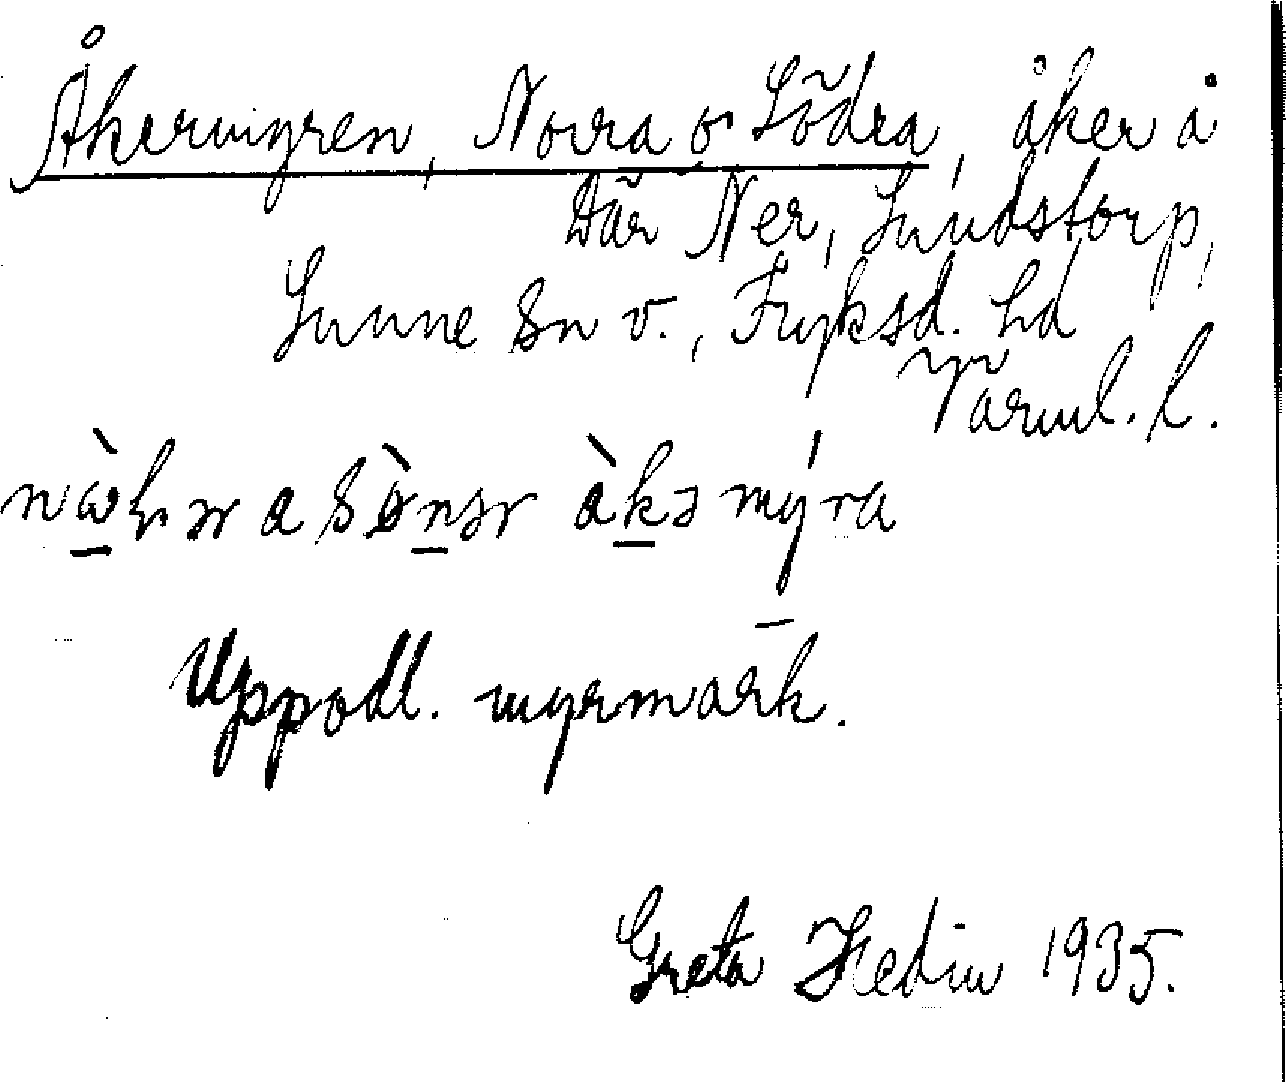 Åkermyren, Norra o Södra, åker å
Där Ner, Sundstorp,
Sunne Sn v., Fryksd. hd
Värml. l.
a àkə mýra
Uppodl. myrmark.
Greta Hedin 1935.